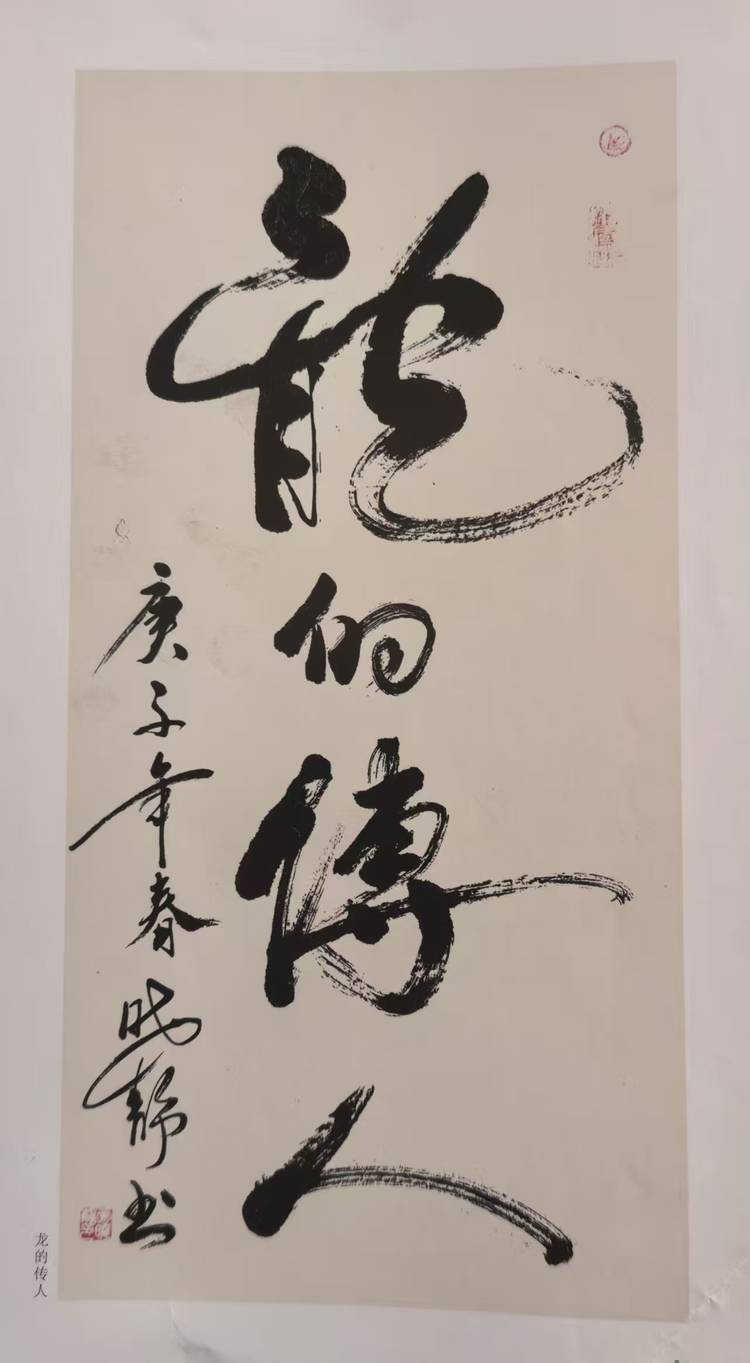 龍的傳人
庚子年春曉靜书
龙的传人